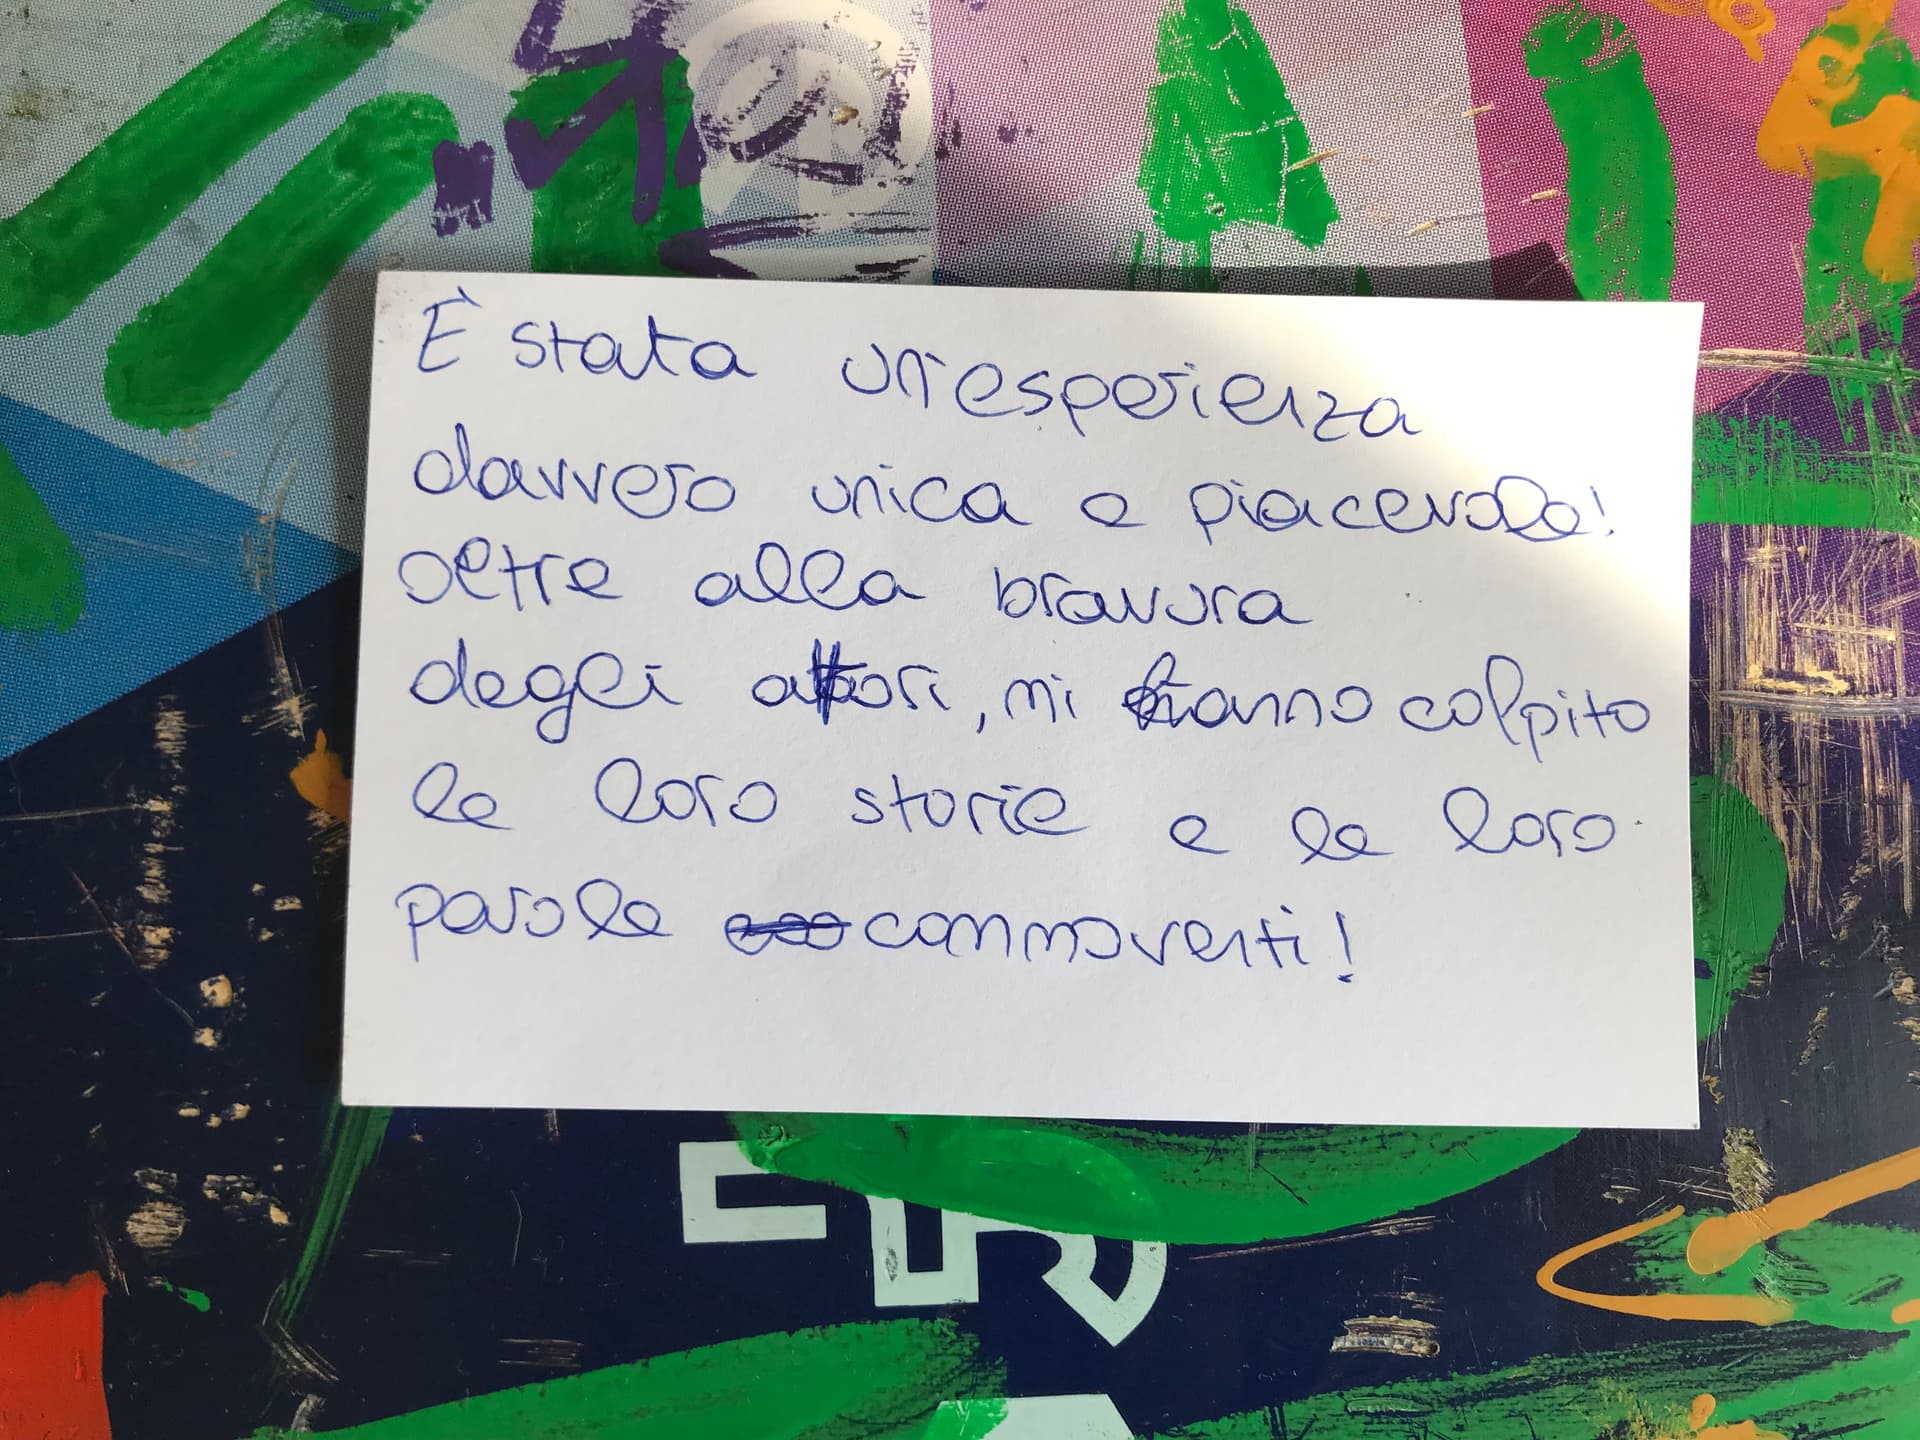 È stata un'esperienza
davvero unica e piacevole!
Oltre alla bravura
degli attori, mi hanno colpito
le loro storie e le loro
parole commoventi!